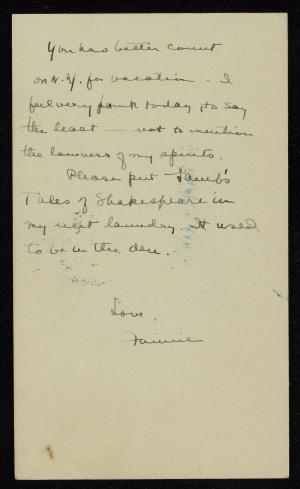 You has better count
on N.Y. for vacation. I
feel very punk today, to say
the least — not to mention
the lowness of my spirits.
Please put Lamb's
Tales of Shakespeare in
my next laundry. It used
to be in the den.
Love,
Fannie